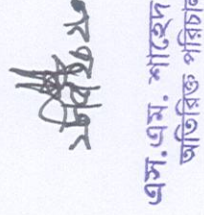 এস.এম. শাহেদ
অতিরিক্ত পরিচা